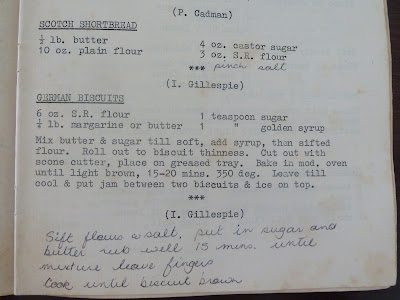 (P. Cadman)
SCOTCH SHORTBREAD
½ lb. butter 4 oz. castor sugar
10 oz. plain flour 3 oz. S.R. flour
*** pinch salt
(I. Gillespie)
GERMAN BISCUITS
6 oz. S.R. flour 1 teaspoon sugar
¼ lb. margarine or butter 1 " golden syrup
Mix butter & sugar till soft, add syrup, then sifted
flour. Roll out to biscuit thinness. Cut out with
scone cutter, place on greased tray. Bake in mod. oven
until light brown, 15-20 mins. 350 deg. Leave till
cool & put jam between two biscuits & ice on top.
***
(I. Gillespie)
Sift flours & salt, put in sugar and
butter rub well 15 mins. until
mixture leave fingers
Cook until biscuit brown